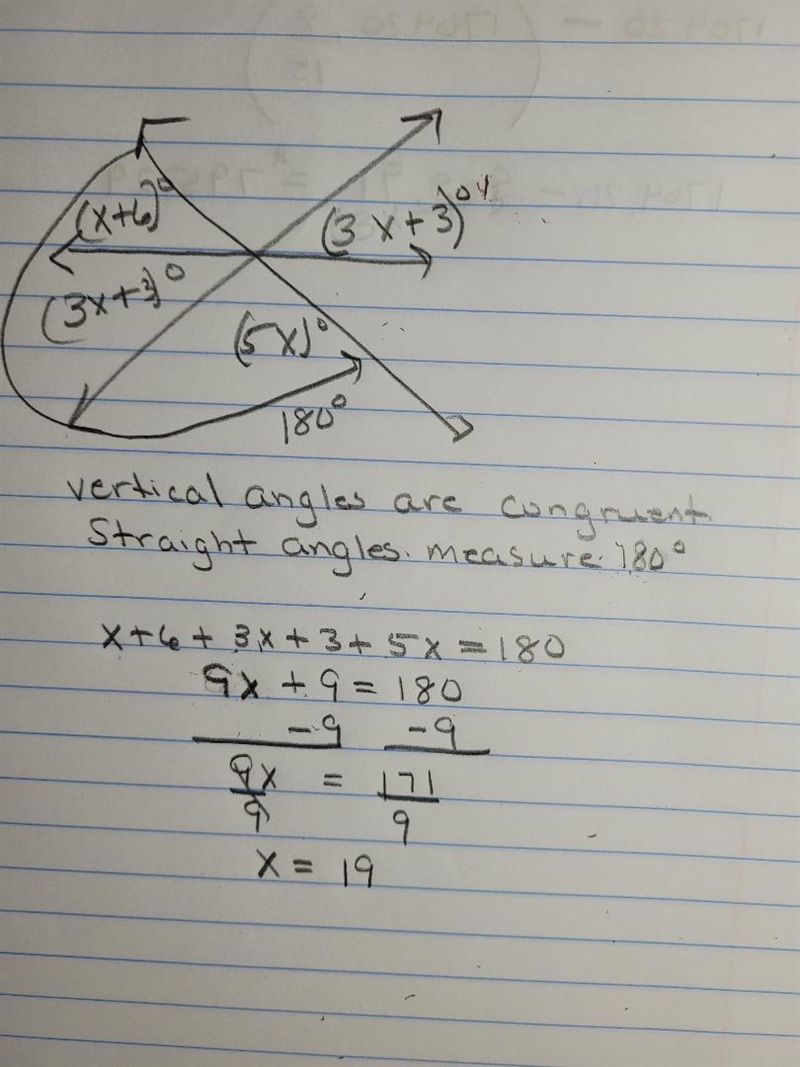 (x+6)°
(3x+3)°
(3x+3)°
(5x)°
180°
vertical angles are congruent.
Straight angles. measure 180°
x+6 + 3x + 3 + 5x = 180
9x + 9 = 180
-9 -9
9x = 171
9 9
x = 19